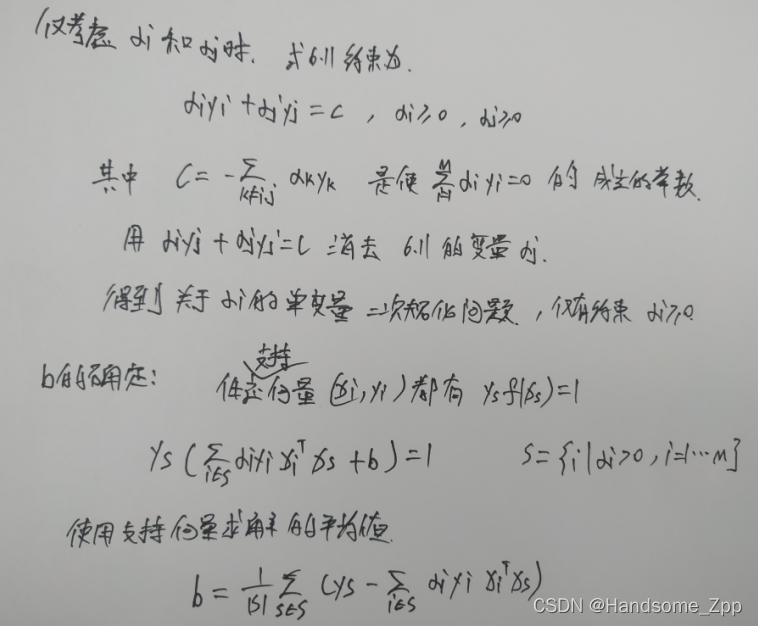 仅考虑 αi 和 αj时, 式6.11 约束为.
αiyi + αjyj = C , αi≥0, αj≥0
其中 C = -∑k≠i,j αkyk 是使 ∑i=1^m αiyi=0 的 成立的常数.
用 αiyj + αjyj=C 消去 6.11 的变量 αj.
得到关于 αi的单变量 二次规化问题, 仅有约束 αi≥0.
b的确定: 任意支持向量 (xi, yi) 都有 ysf(xs)=1
ys (∑i∈s αiyi xi^T xs + b) = 1 S={i|αi>0, i=1…m}
使用支持向量求解的平均值
b = 1/|S| ∑s∈S (ys - ∑i∈s αiyi xi^T xs)
CSDN @Handsome_Zpp